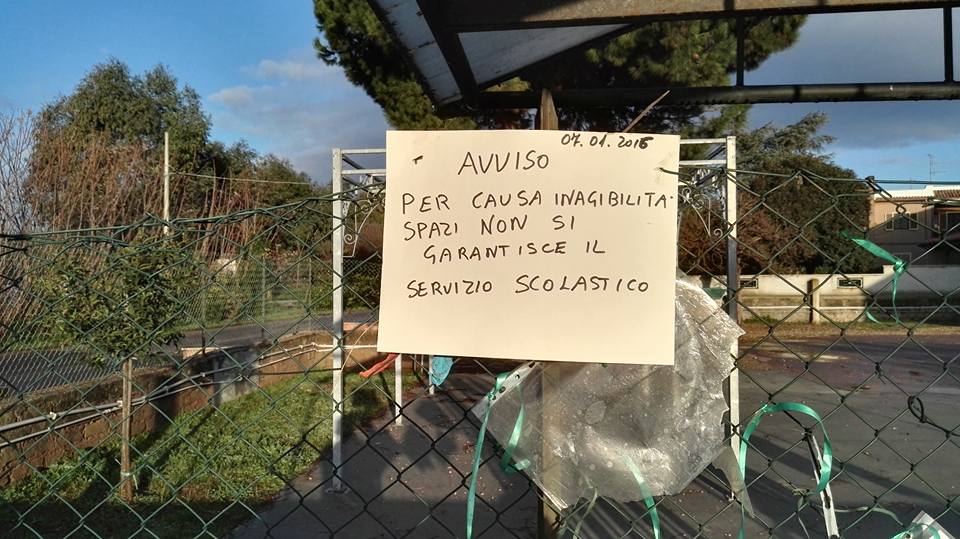 07.01.2016
AVVISO
PER CAUSA INAGIBILITA'
SPAZI NON SI
GARANTISCE IL
SERVIZIO SCOLASTICO